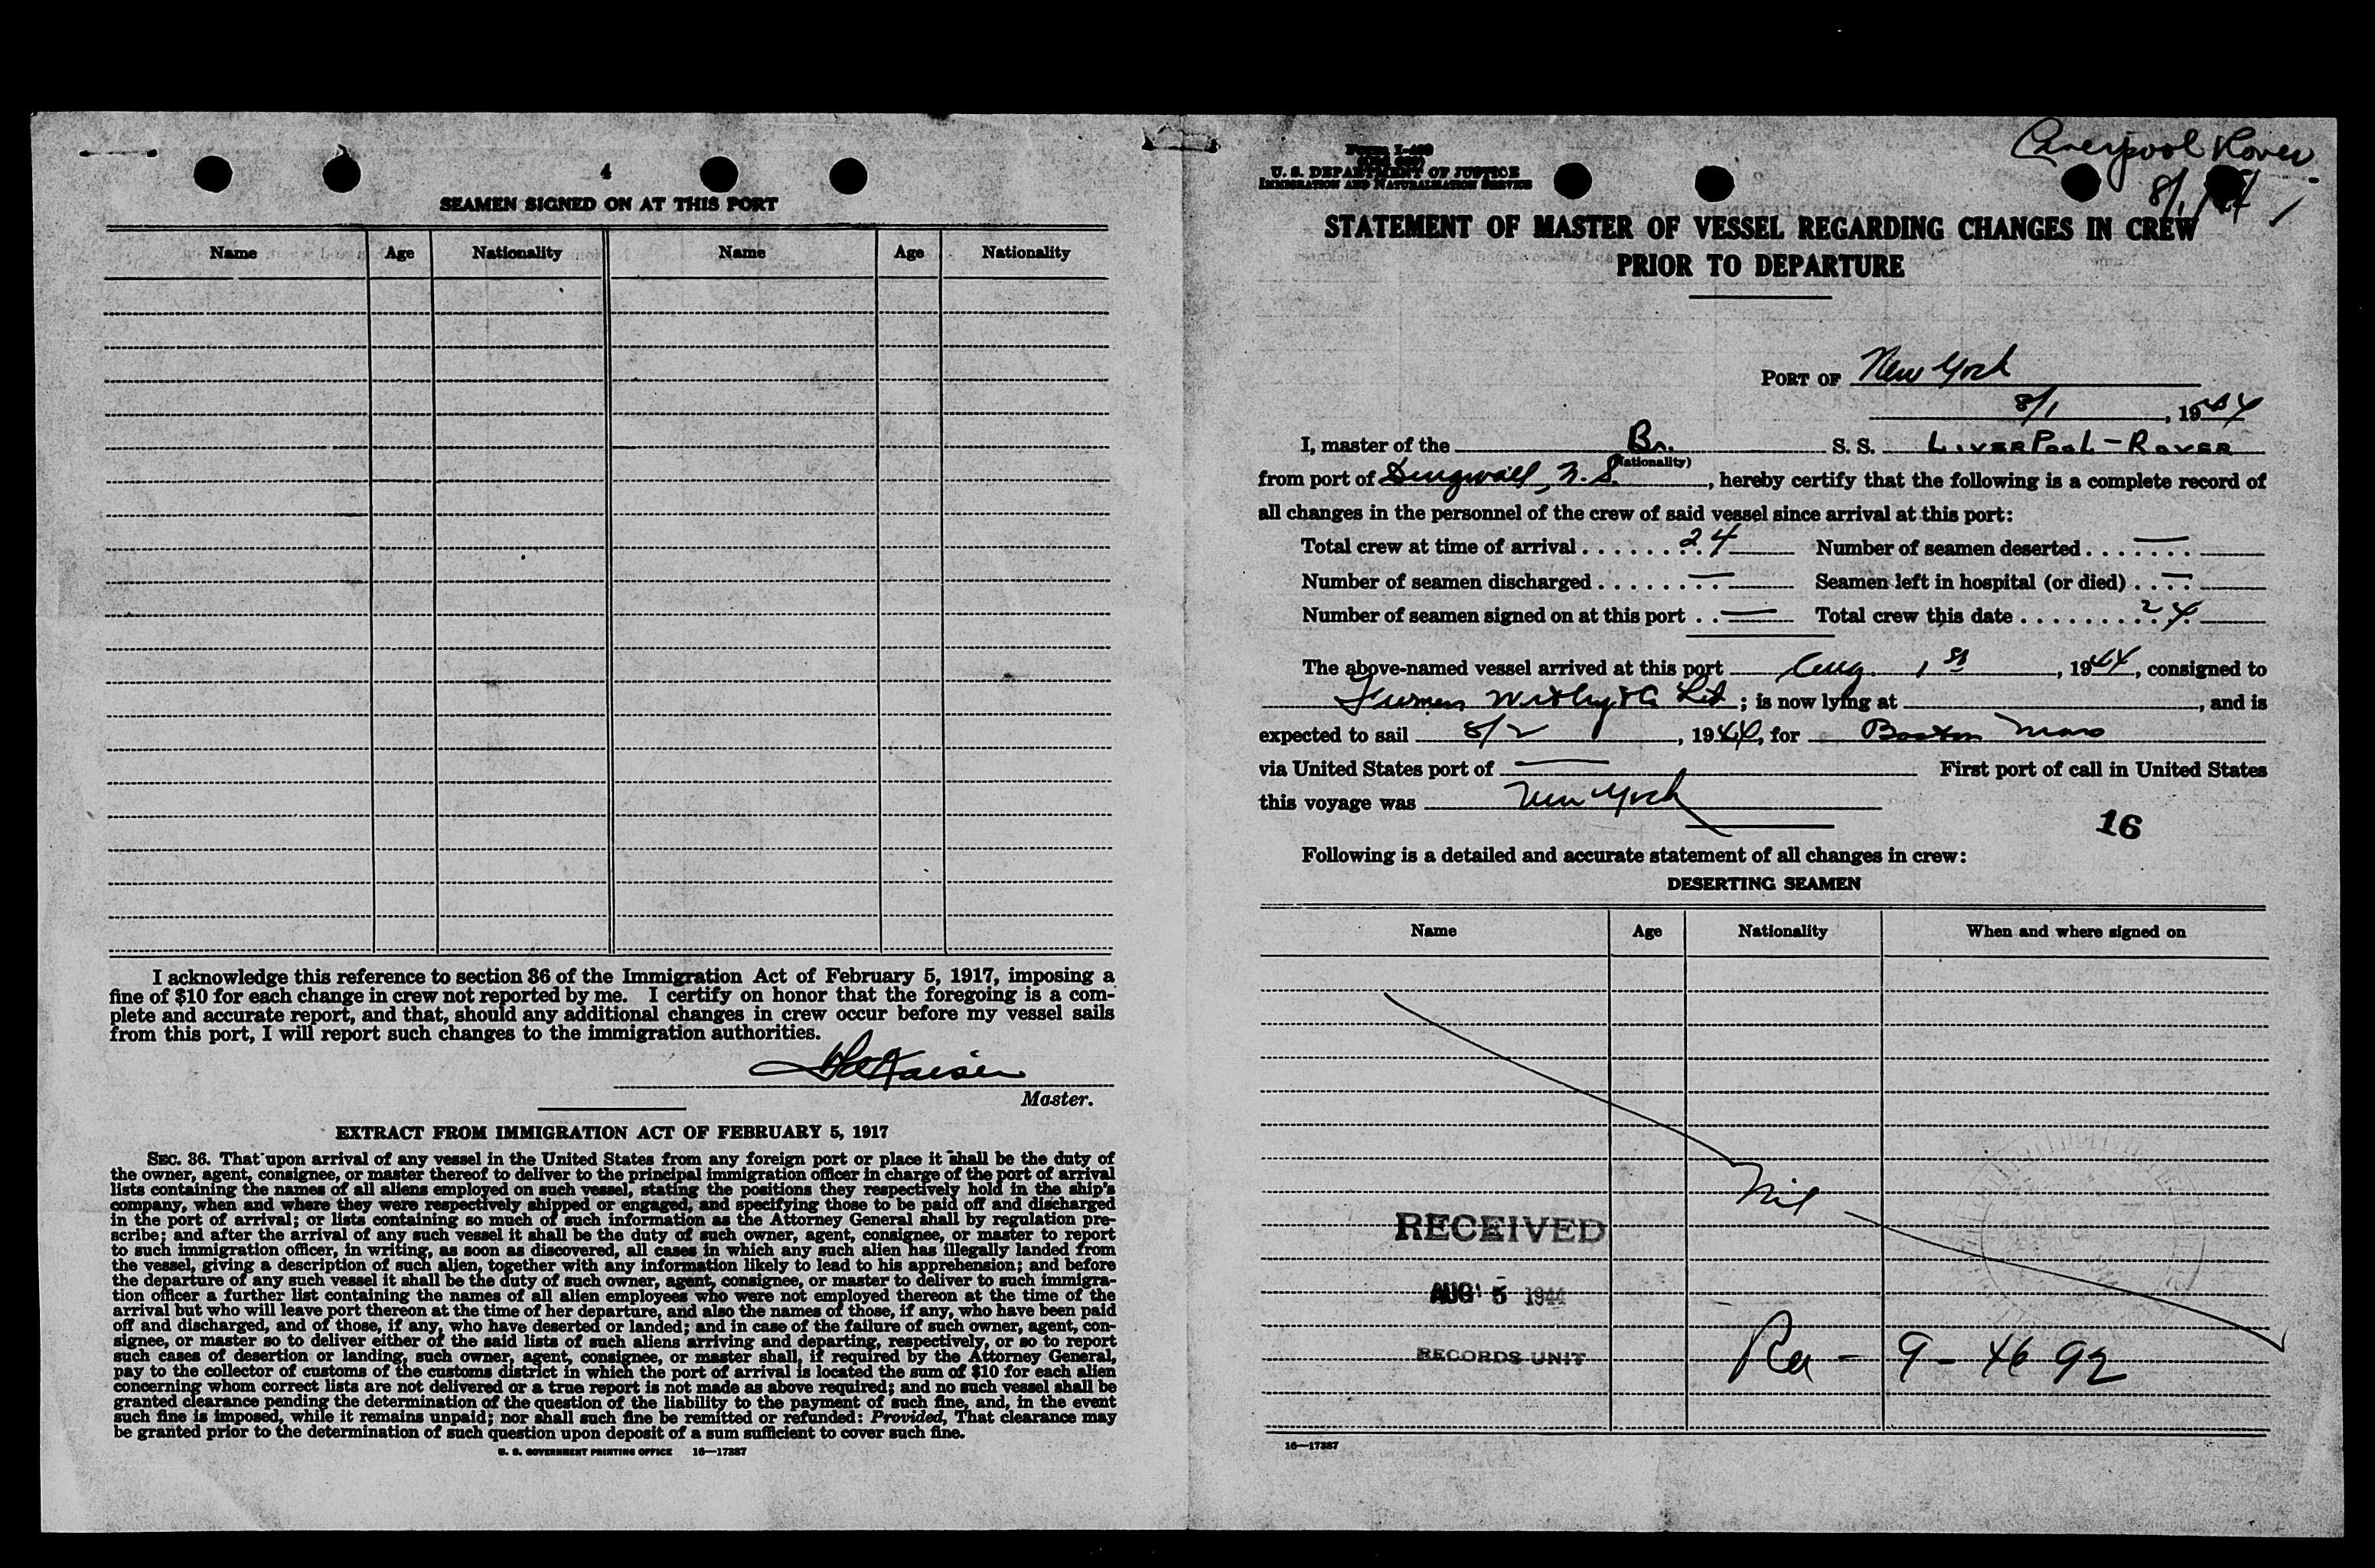 4
SEAMEN SIGNED ON AT THIS PORT
Name Age Nationality Name Age Nationality
I acknowledge this reference to section 36 of the Immigration Act of February 5, 1917, imposing a
fine of $10 for each change in crew not reported by me. I certify on honor that the foregoing is a com-
plete and accurate report, and that, should any additional changes in crew occur before my vessel sails
from this port, I will report such changes to the immigration authorities.
Master.
EXTRACT FROM IMMIGRATION ACT OF FEBRUARY 5, 1917
SEC. 36. That upon arrival of any vessel in the United States from any foreign port or place it shall be the duty of
the owner, agent, consignee, or master thereof to deliver to the principal immigration officer in charge of the port of arrival
lists containing the names of all aliens employed on such vessel, stating the positions they respectively hold in the ship's
company, when and where they were respectively shipped or engaged, and specifying those to be paid off and discharged
in the port of arrival; or lists containing so much of such information as the Attorney General shall by regulation pre-
scribe; and after the arrival of any such vessel it shall be the duty of such owner, agent, consignee, or master to report
to such immigration officer, in writing, as soon as discovered, all cases in which any such alien has illegally landed from
the vessel, giving a description of such alien, together with any information likely to lead to his apprehension; and before
the departure of any such vessel it shall be the duty of such owner, agent, consignee, or master to deliver to such immigra-
tion officer a further list containing the names of all alien employees who were not employed thereon at the time of the
arrival but who will leave port thereon at the time of her departure, and also the names of those, if any, who have been paid
off and discharged, and of those, if any, who have deserted or landed; and in case of the failure of such owner, agent, con-
signee, or master so to deliver either of the said lists of such aliens arriving and departing, respectively, or so to report
such cases of desertion or landing, such owner, agent, consignee, or master shall, if required by the Attorney General,
pay to the collector of customs of the customs district in which the port of arrival is located the sum of $10 for each alien
concerning whom correct lists are not delivered or a true report is not made as above required; and no such vessel shall be
granted clearance pending the determination of the question of the liability to the payment of such fine, and, in the event
such fine is imposed, while it remains unpaid; nor shall such fine be remitted or refunded: Provided, That clearance may
be granted prior to the determination of such question upon deposit of a sum sufficient to cover such fine.
U. S. GOVERNMENT PRINTING OFFICE 16—17387
U. S. DEPARTMENT OF JUSTICE
IMMIGRATION AND NATURALIZATION SERVICE
Liverpool Rover
8/1/44
STATEMENT OF MASTER OF VESSEL REGARDING CHANGES IN CREW
PRIOR TO DEPARTURE
PORT OF New York
8/1, 1944
I, master of the Br. S. S. LIVERPOOL-ROVER
(Nationality)
from port of Dingwall, N.S., hereby certify that the following is a complete record of
all changes in the personnel of the crew of said vessel since arrival at this port:
Total crew at time of arrival 24 Number of seamen deserted —
Number of seamen discharged — Seamen left in hospital (or died) —
Number of seamen signed on at this port — Total crew this date 24
The above-named vessel arrived at this port Aug. 1st, 1944, consigned to
Furness Withy & Co Ltd; is now lying at , and is
expected to sail 8/2, 1944, for Boston Mass
via United States port of — First port of call in United States
this voyage was New York
16
Following is a detailed and accurate statement of all changes in crew:
DESERTING SEAMEN
Name Age Nationality When and where signed on
Nil
RECEIVED
AUG 5 1944
RECORDS UNIT
9-4692
16—17387